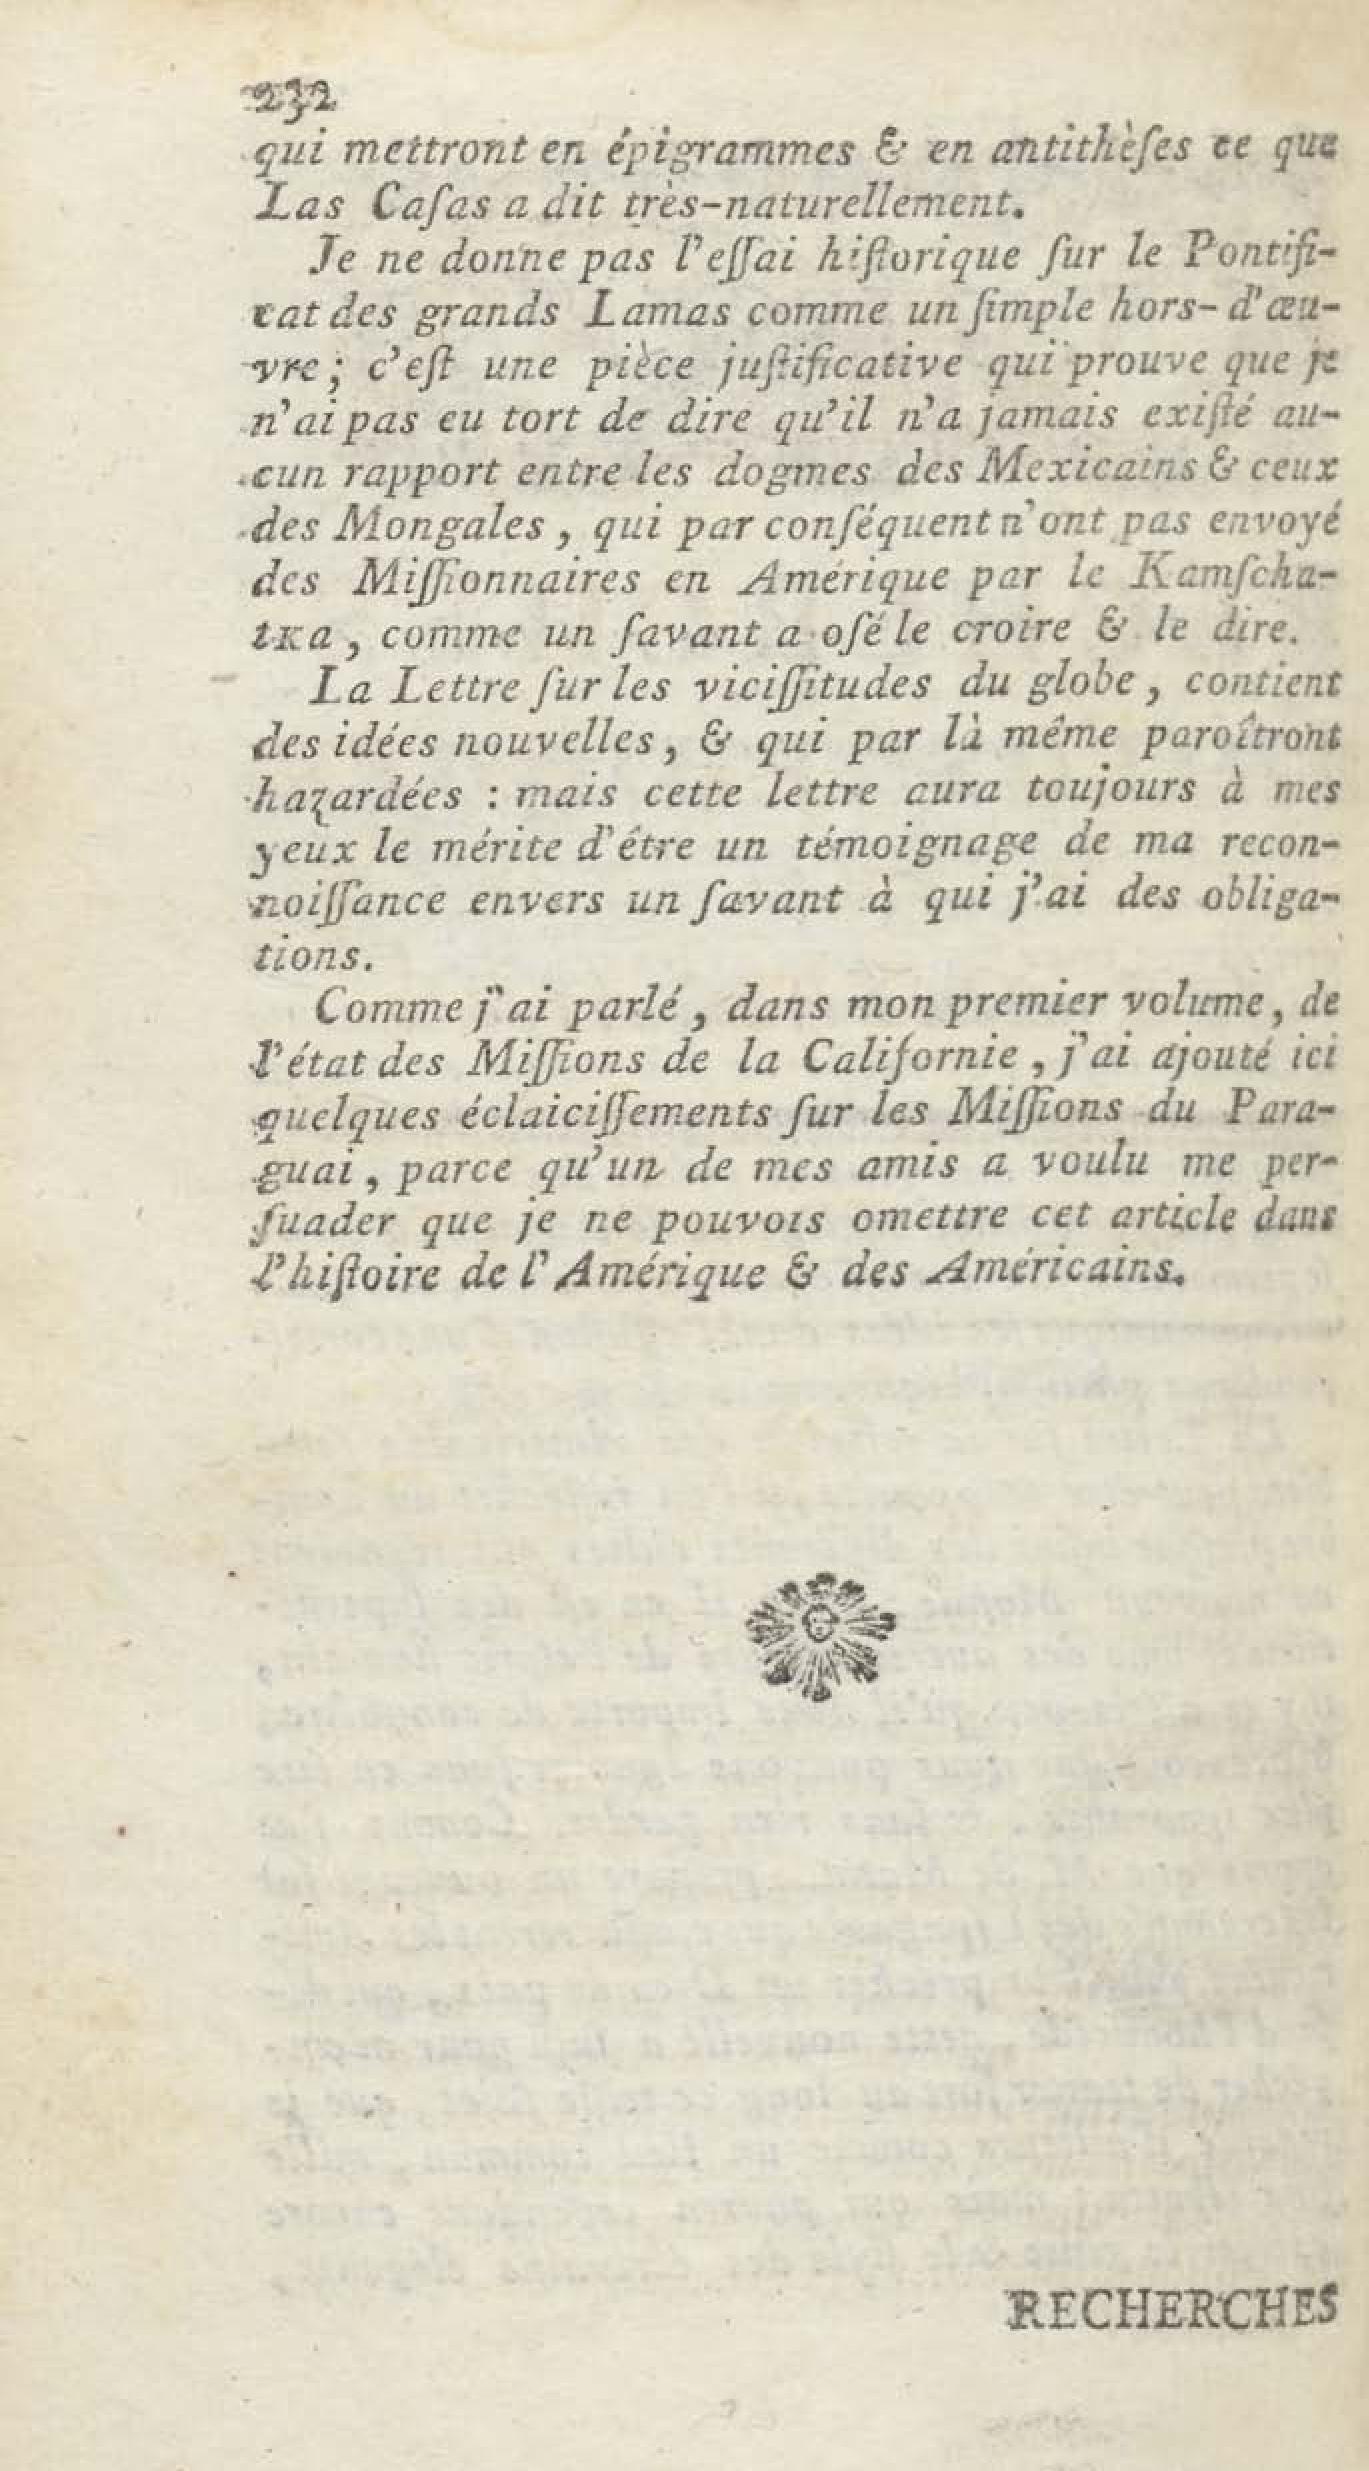 232
qui mettront en épigrammes & en antithèſes ce que
Las Caſas a dit très-naturellement.
Je ne donne pas l'eſſai hiſtorique ſur le Pontifi-
cat des grands Lamas comme un ſimple hors-d'œu-
vre; c'eſt une pièce juſtificative qui prouve que je
n'ai pas eu tort de dire qu'il n'a jamais exiſté au-
cun rapport entre les dogmes des Mexicains & ceux
des Mongales, qui par conſéquent n'ont pas envoyé
des Miſſionnaires en Amérique par le Kamſcha-
tka, comme un ſavant a oſé le croire & le dire.
La Lettre ſur les viciſſitudes du globe, contient
des idées nouvelles, & qui par là même paroîtront
hazardées : mais cette lettre aura toujours à mes
yeux le mérite d'être un témoignage de ma recon-
noiſſance envers un ſavant à qui j'ai des obliga-
tions.
Comme j'ai parlé, dans mon premier volume, de
l'état des Miſſions de la Californie, j'ai ajouté ici
quelques éclaiciſſements ſur les Miſſions du Para-
guai, parce qu'un de mes amis a voulu me per-
ſuader que je ne pouvois omettre cet article dans
l'hiſtoire de l'Amérique & des Américains.
RECHERCHES